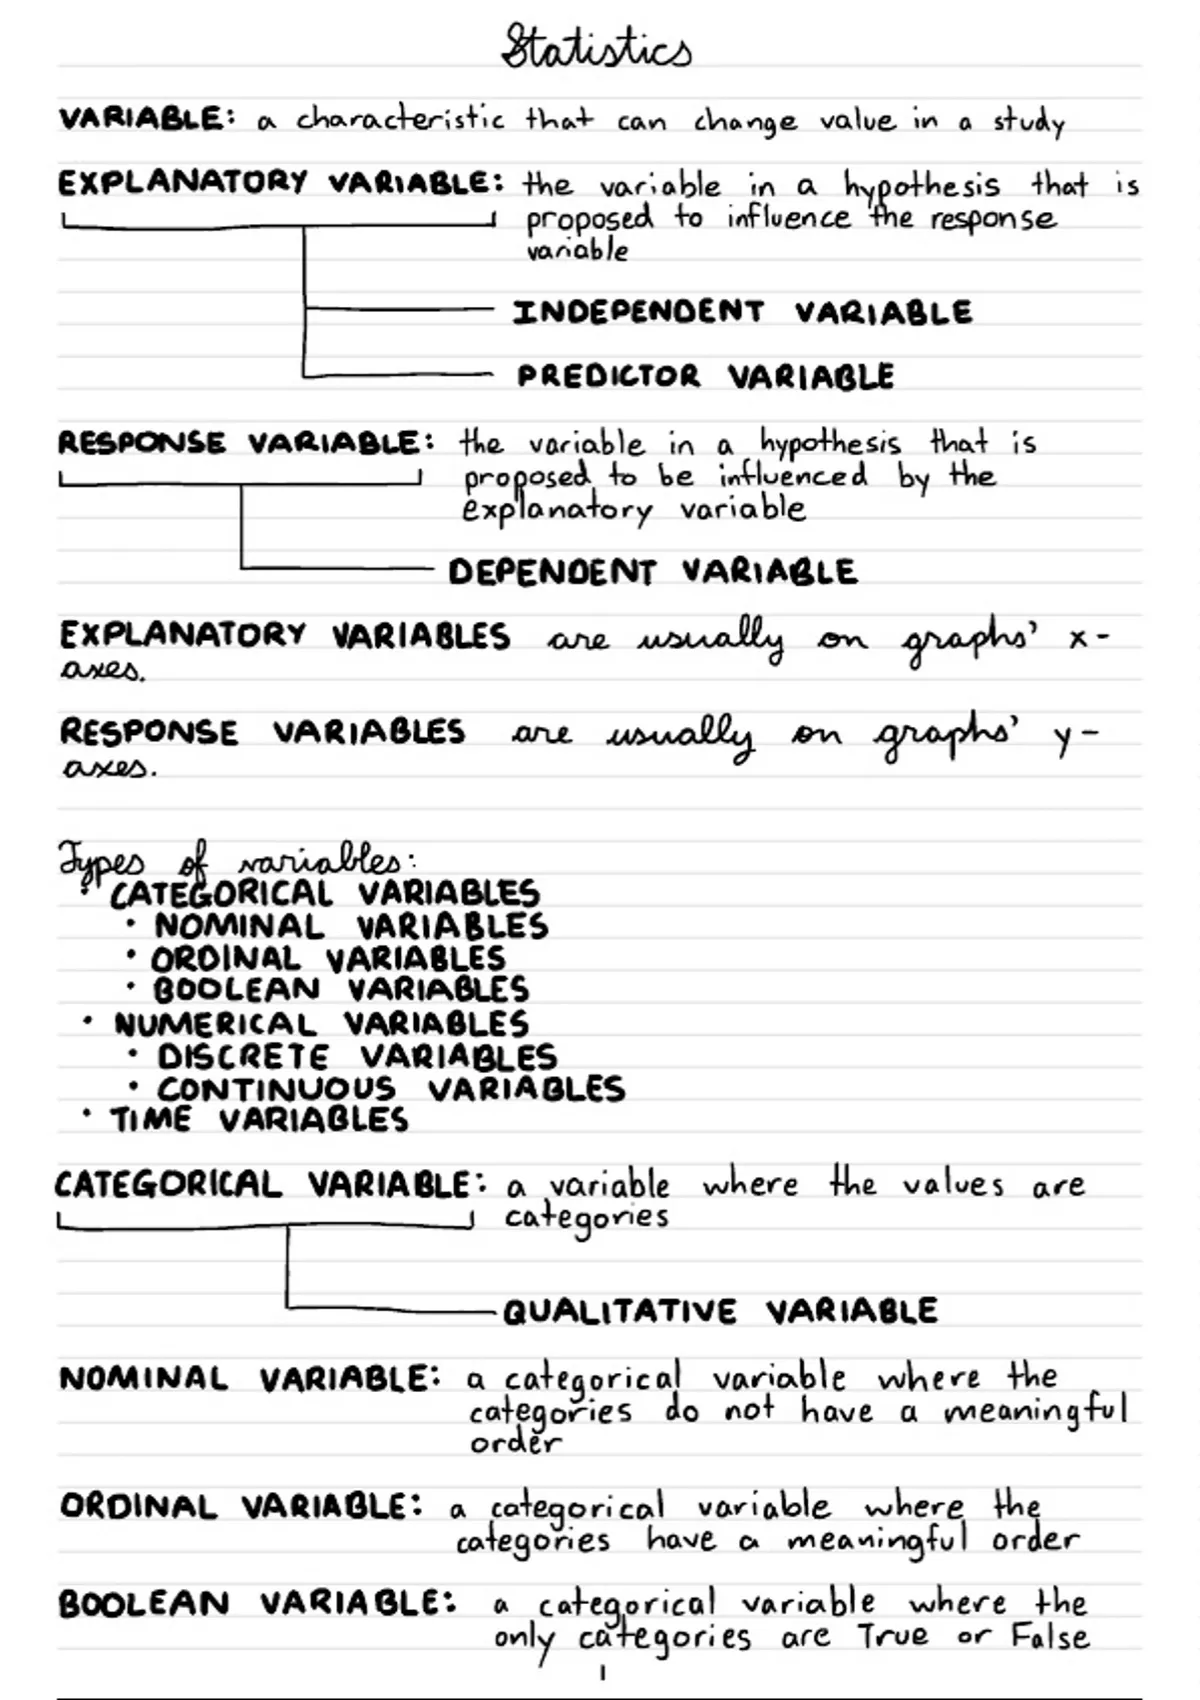 Statistics
VARIABLE: a characteristic that can change value in a study
EXPLANATORY VARIABLE: the variable in a hypothesis that is
proposed to influence the response
variable
INDEPENDENT VARIABLE
PREDICTOR VARIABLE
RESPONSE VARIABLE: the variable in a hypothesis that is
proposed to be influenced by the
explanatory variable
DEPENDENT VARIABLE
EXPLANATORY VARIABLES are usually on graphs' x-
axes.
RESPONSE VARIABLES are usually on graphs' y-
axes.
Types of variables:
• CATEGORICAL VARIABLES
• NOMINAL VARIABLES
• ORDINAL VARIABLES
• BOOLEAN VARIABLES
• NUMERICAL VARIABLES
• DISCRETE VARIABLES
• CONTINUOUS VARIABLES
• TIME VARIABLES
CATEGORICAL VARIABLE: a variable where the values are
categories
QUALITATIVE VARIABLE
NOMINAL VARIABLE: a categorical variable where the
categories do not have a meaningful
order
ORDINAL VARIABLE: a categorical variable where the
categories have a meaningful order
BOOLEAN VARIABLE: a categorical variable where the
only categories are True or False
1